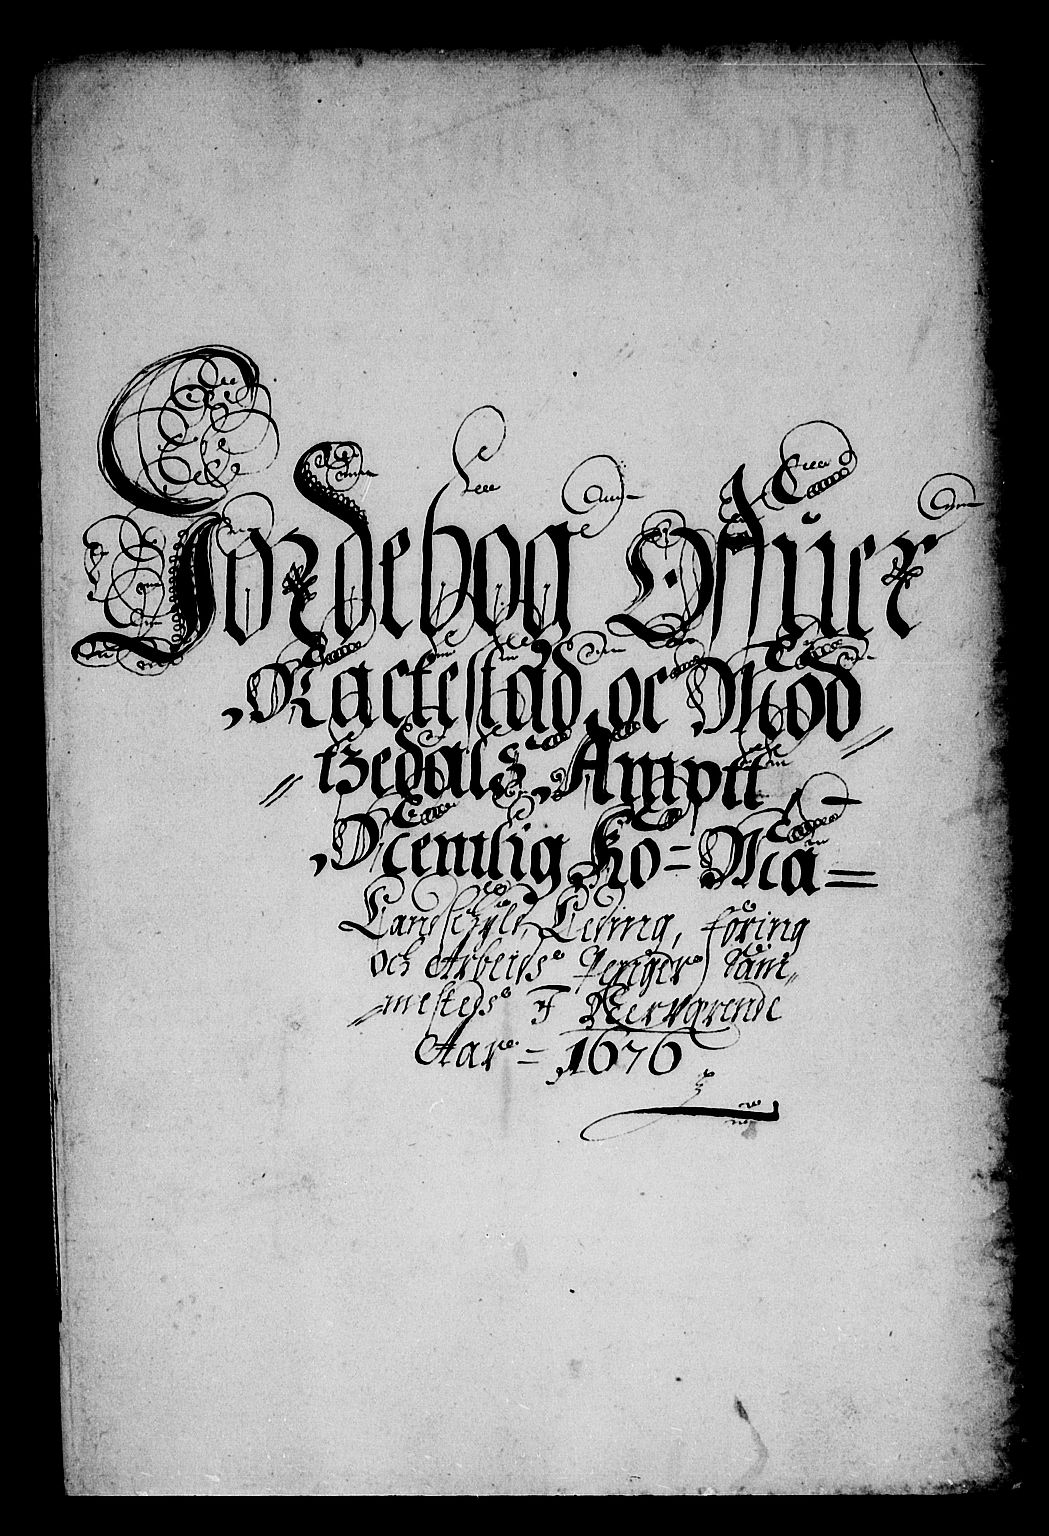 Jordebog Offuer
Rackestad oc Mod
tzedals Amptt
Nemlig Ko= Ma=
Landschyld, Leding, föring
och Arbeids Penger, Sam,,
mesteds I Nerverende
Aar = 1676